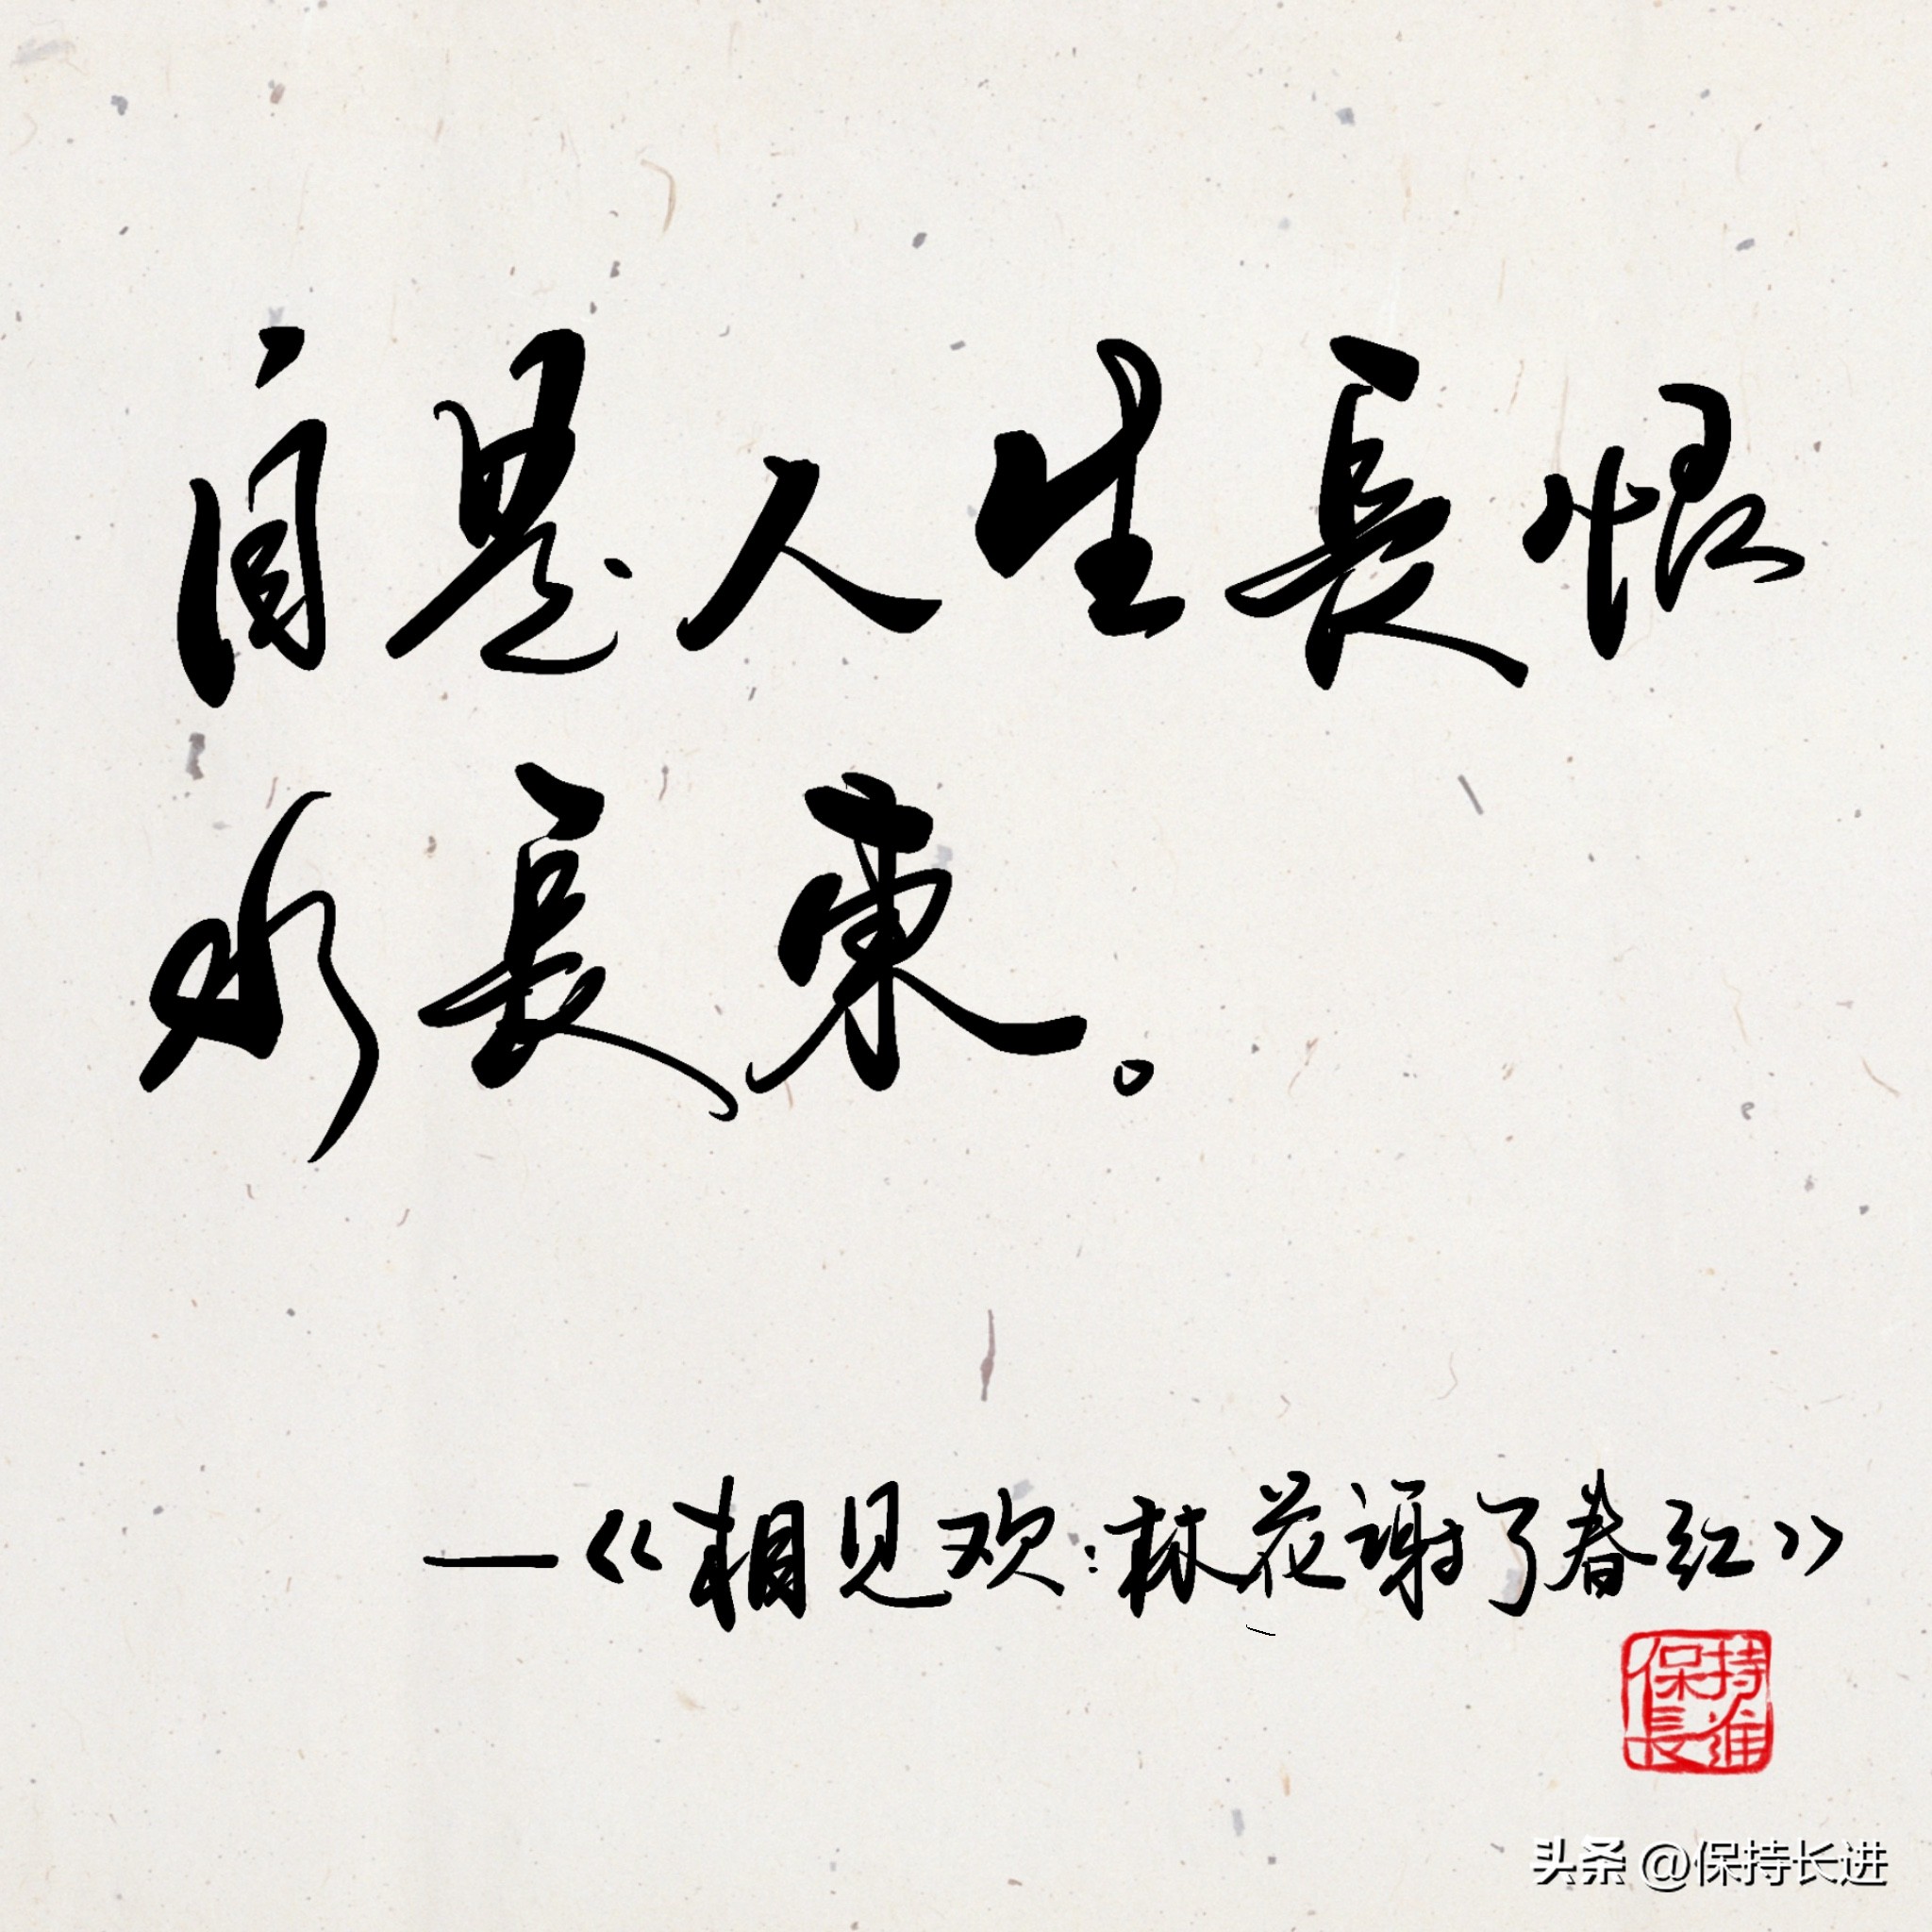 自是人生長恨
水長東。
—《相见欢:林花谢了春红》
保持
長進
头条 @保持长进